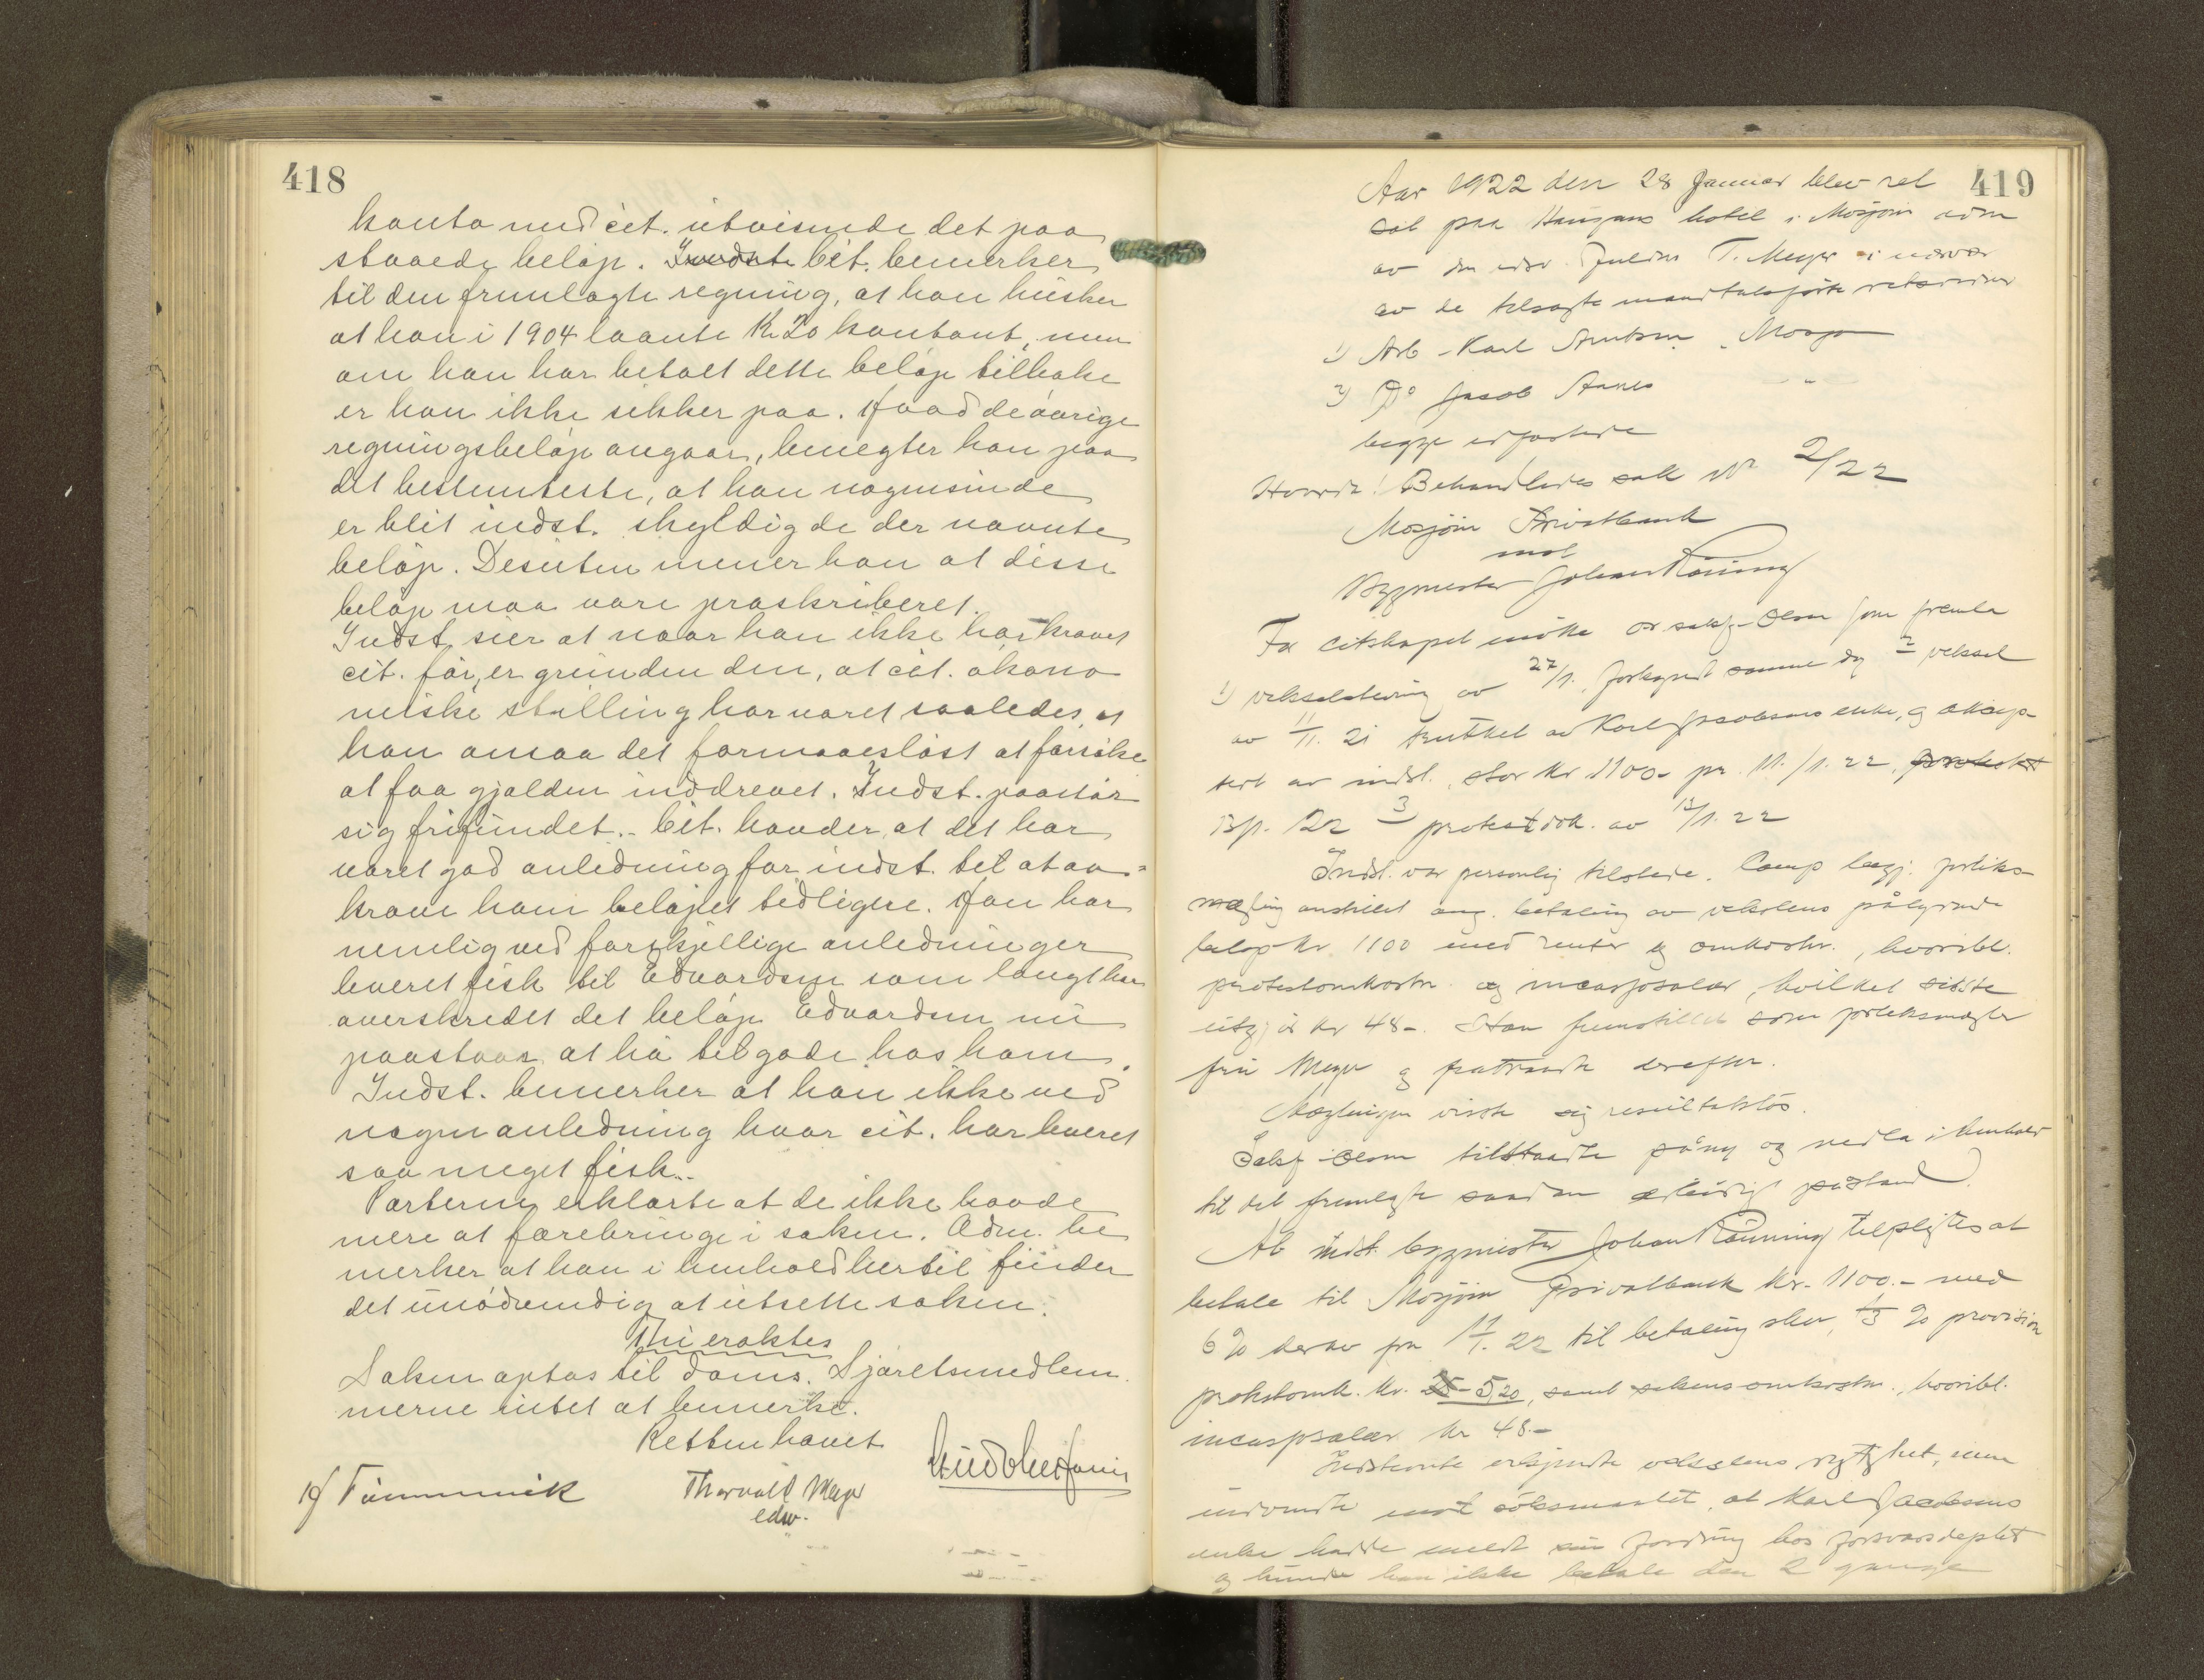 418
konto med cit. utvisende det paa
staaede beløp. Indste Cit. bemerker
til den fremlagte regning, at han husker
at han i 1904 laante Kr 20 kontant, men
om han har betalt dette beløp tilbake
er han ikke sikker paa. Hvad de øvrige
regningsbeløp angaar, benegter han paa
det bestemteste, at han nogensinde
er blit indst. skyldig de der nævnte
beløp. Desuten mener han at disse
beløp maa være præskriberet.
Indst. sier at naar han ikke har krævet
cit. før, er grunden den, at cit. økono
miske stilling har været saaledes, at
han ansaa det formaalsløst at forsøke
at faa gjælden inddrevet. Indst. paastår
sig frifundet. - Cit. hævder, at det har
været god anledning for indst. til at av-
kræve ham beløpet tidligere. Han har
nemlig ved forskjellige anledninger
leveret fisk til Edvardsen som langt har
overskredet det beløp Edvardsen nu
paastaar at ha tilgode hos ham.
Indst. bemerker at han ikke ved
nogen anledning hvor cit. har leveret
saa meget fisk.
Parterne erklærte at de ikke havde
mere at forebringe i saken. Adm. be
merker at han i henhold hertil finder
det unødvendig at utsette saken.
Thi eraktes
Saken optas til doms. Sjøretsmedlem
merne intet at bemerke.
Retten hævet
Thorvald Meyer
edsv.
419
Aar 1922 den 28 Januar blev ret
sat paa Haugans hotel i Mosjøen adm
av den edsv. fuldm T. Meyer i nærvær
av de tilsagte mandtalsførte retsvidner
1) Arb Karl Arntsen, Mosjø
2) Do Jacob "
begge edfæstede
Hvorda! Behandledes sak No 2/22
Mosjøen Privatbank
mot
Byggmester Johan Rønning
For citskapet møtte or sakf. Olsen som fremla
1) vekselstevning av 27/1. forkyndt samme dag 2 veksel
av 11/11. 21 trukket av Karl Jacobsens enke, og aksep-
tert av indst. stor kr 1100- pr. 11./1. 22, protest
3 protestdok. av 12/1. 22
Indst. var personlig tilstede. forliks
mægling anstillet ang. betaling av vekslens pålydende
beløp kr. 1100 med renter og omkostn., hvoribl.
protestomkostn. og incassosalær, hvilket sidste
utgjør kr 48-. Han fremstillet som forliksmægler
fru Meyer og fratraadte derefter.
Mæglingen viste sig resultatløs.
Sakf. Olsen tiltraadte påny og nedla i henhold
til det fremlagte saadan påstand
At indst. byggmester Johan Rønning tilpligtes at
betale til Mosjøen Privatbank kr. 1100.- med
6% derav fra 11/1. 22 til betaling sker, 1/3 % provision
protestomk. kr. 5,20, samt sakens omkostn., hvoribl.
incassosalær kr 48.-
Indstevnte erkjendte vekslens rigtighet, men
indvendte mot søksmaalet, at Karl Jacobsens
enke hadde meldt sin fordring hos forsvarsdeptet
og kunde han ikke betale den 2 gange